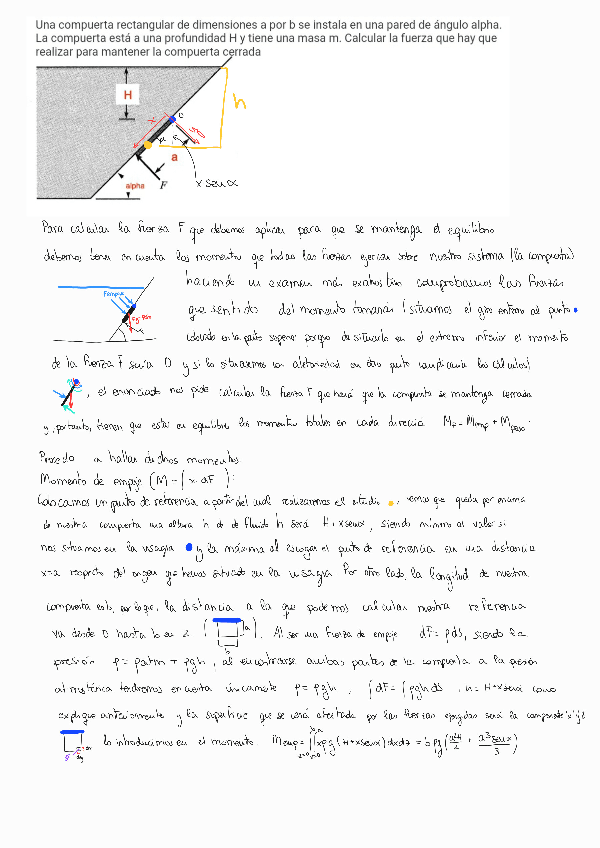 Una compuerta rectangular de dimensiones a por b se instala en una pared de ángulo alpha.
La compuerta está a una profundidad H y tiene una masa m. Calcular la fuerza que hay que
realizar para mantener la compuerta cerrada
H
h
x
c
a
alpha
F
x senα
Para calcular la fuerza F que debemos aplicar para que se mantenga el equilibrio
debemos tener en cuenta los momentos que todas las fuerzas ejercen sobre nuestro sistema (la compuerta)
haciendo un examen más exhaustivo comprobamos las fuerzas
que sentido del momento tomarán (situamos el giro entorno al punto
colocado en la parte superior porque de situarlo en el extremo inferior el momento
de la fuerza F sería 0 y si lo situásemos en otro punto complicaría los cálculos)
, el enunciado nos pide calcular la fuerza F que hará que la compuerta se mantenga cerrada
y, por tanto, tienen que estar en equilibrio los momentos totales en cada dirección M_F = M_emp + M_peso
Procedo a hallar dichos momentos.
Momento de empuje (M = ∫x dF):
Colocamos un punto de referencia a partir del cual realizaremos el estudio , vemos que queda por encima
de nuestra compuerta una altura h de fluido h será H + x senα, siendo mínimo el valor si
nos situamos en la bisagra y la máxima al escoger el punto de referencia en una distancia
x=a respecto del origen que hemos situado en la bisagra. Por otro lado, la longitud de nuestra
compuerta es b, por lo que, la distancia a la que podremos calcular nuestra referencia
va desde 0 hasta b en z. Al ser una fuerza de empuje dF = p ds, siendo la
presión p = patm + ρgh, al encontrarse ambas partes de la compuerta a la presión
atmosférica tendremos en cuenta únicamente p = ρgh, ∫dF = ∫ρgh ds, h = H + x senα como
expliqué anteriormente y la superficie que se verá afectada por las fuerzas ejercidas será la componente x y z
lo introducimos en el momento. M_emp = ∫∫ xρg (H + x senα) dx dz = b ρg (a²H/2 + a³ senα/3)